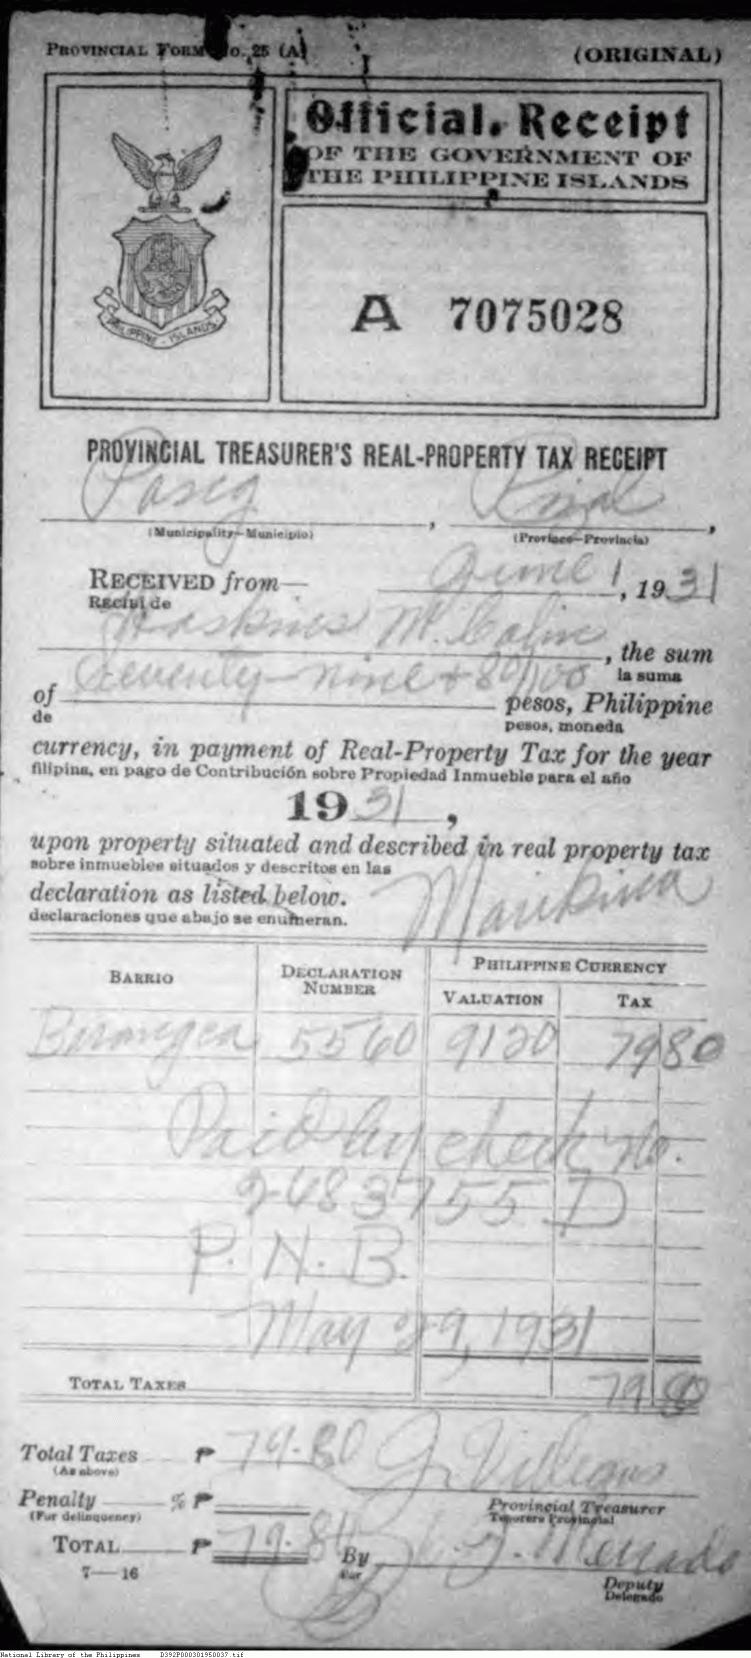 PROVINCIAL FORM No. 25 (A)
(ORIGINAL)
Official Receipt
OF THE GOVERNMENT OF
THE PHILIPPINE ISLANDS
PHILIPPINE ISLANDS
A 7075028
PROVINCIAL TREASURER'S REAL-PROPERTY TAX RECEIPT
Pasig, Rizal,
(Municipality—Municipio) (Province—Provincia)
RECEIVED from— June 1, 1931
Recibí de
Haskins M. Colin, the sum
la suma
of Seventy-nine + 80/100 pesos, Philippine
de pesos, moneda
currency, in payment of Real-Property Tax for the year
filipina, en pago de Contribución sobre Propiedad Inmueble para el año
1931,
upon property situated and described in real property tax
sobre inmuebles situados y descritos en las
declaration as listed below. Marikina
declaraciones que abajo se enumeran.
BARRIO DECLARATION NUMBER PHILIPPINE CURRENCY
VALUATION TAX
Barangca 5560 9120 79 80
Paid by check No.
2483755 D
P. N. B.
May 29, 1931
TOTAL TAXES 79 80
Total Taxes ₱ 79.80 J. Villegas
(As above)
Penalty % ₱ Provincial Treasurer
(For delinquency) Tesorero Provincial
TOTAL ₱ 79.80 By Mercado
Por
7—16 Deputy
Delegado
National Library of the Philippines D392P000301950037.tif